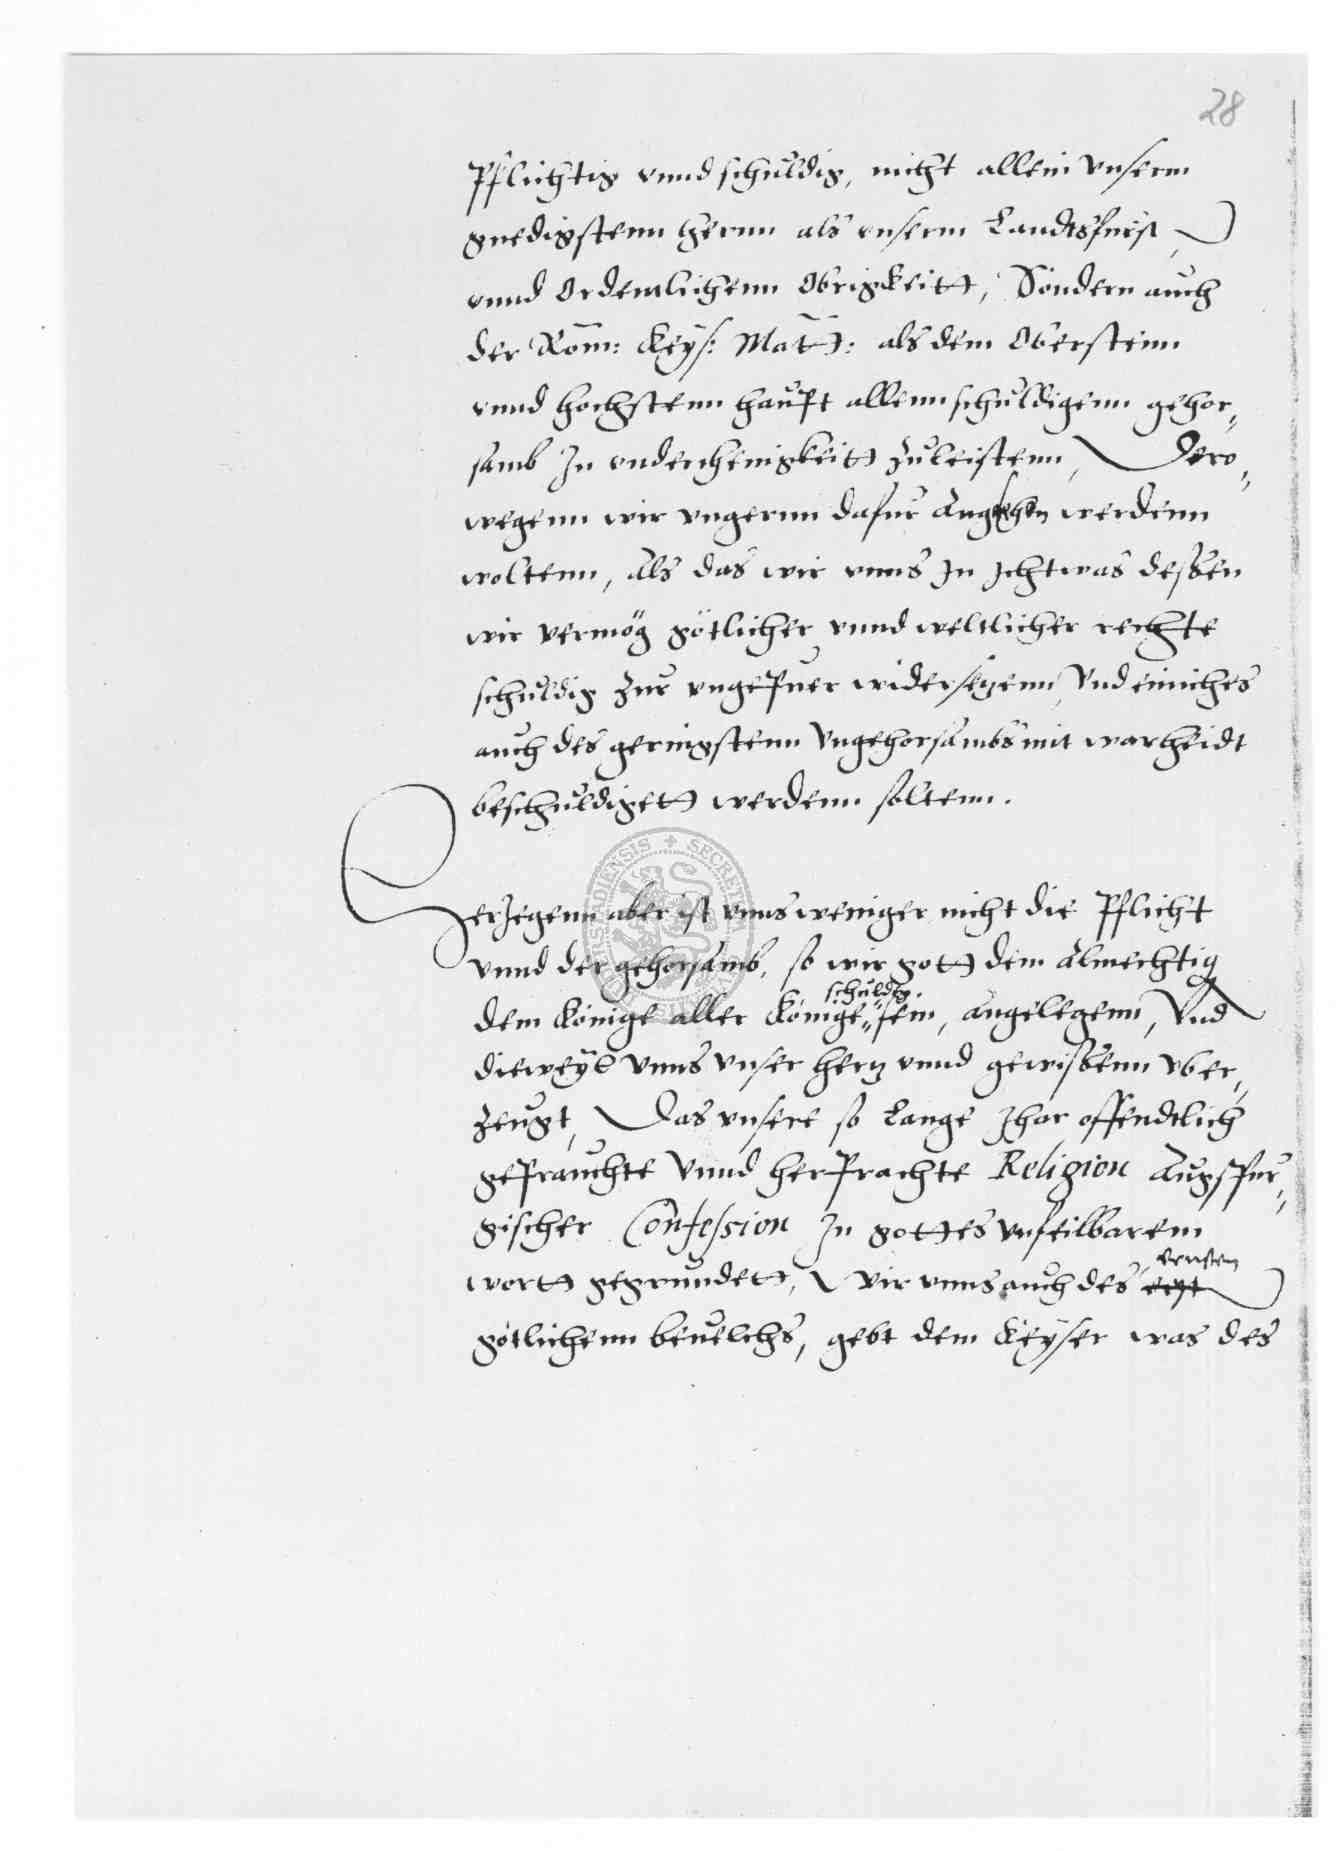 28
Pflichtig vnnd schuldig, nicht allein vnserm
gnedigstenn hernn als vnserm Landtsfurst
vnnd Ordenlichenn Obrigkeitt, Sondern auch
der Röm: Keys: Matt: als dem Oberstenn
vnnd hochstenn haupt allenn schuldigenn gehor„
samb In vnderthenigkeitt zuleistenn, Dero„
wegenn wir vngernn dafur Angesehen werdenn
woltenn, Als das wir vnns In Ichtwas dessen
wir vermög götlicher vnnd weltlicher rechte
schuldig zur vngepuer widersetzenn, Vnd einiches
auch des geringstenn Vngehorsambs mit warheidt
beschuldigett werdenn soltenn.
Herjegenn aber ist vnns weniger nicht die Pflicht
vnnd der gehorsamb, so wir gott dem Almechtig
schuldig
dem Könige aller Könige„ sein, Angelegenn, Vnd
dieweyl Vnns vnser hertz vnnd gewissenn vber„
zeugt, Das vnsere so Lange Ihar offendtlich
geprauchte Vnnd herprachte Religion Augspur„
gischer Confession In gottes vnfeilbarem
ernsten
wortt gegrundett, Wir vnns auch des
götlichenn beuelchs, gebt dem Keyser was des
SECRETUM